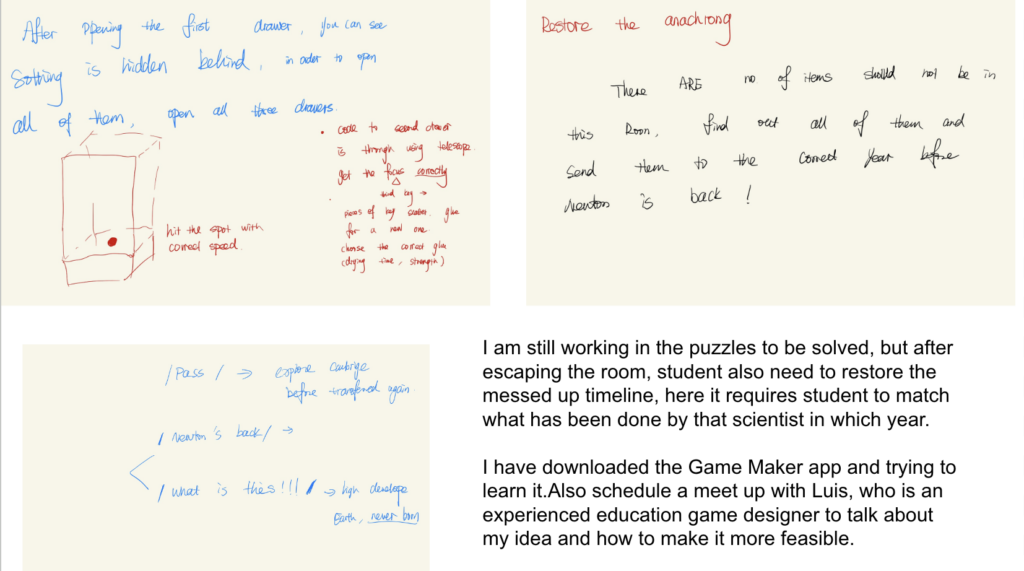 After opening the first drawer, you can see
Sothing is hidden behind, in order to open
all of them, open all three drawers.
• code to second drawer
is through using telescope
get the focus correctly
third key →
pieces of key scatter, glue
for a new one
choose the correct glue
(drying time, strength)
hit the spot with
correct speed.
Restore the anachrong
There ARE no of items should not be in
this Room, find out all of them and
send them to the correct year before
Newton is back !
/Pass / → explore
before transferred again.
/ Newton's back/ →
/ what is this!!! / → high develope
Earth, never born
I am still working in the puzzles to be solved, but after
escaping the room, student also need to restore the
messed up timeline, here it requires student to match
what has been done by that scientist in which year.
I have downloaded the Game Maker app and trying to
learn it.Also schedule a meet up with Luis, who is an
experienced education game designer to talk about
my idea and how to make it more feasible.